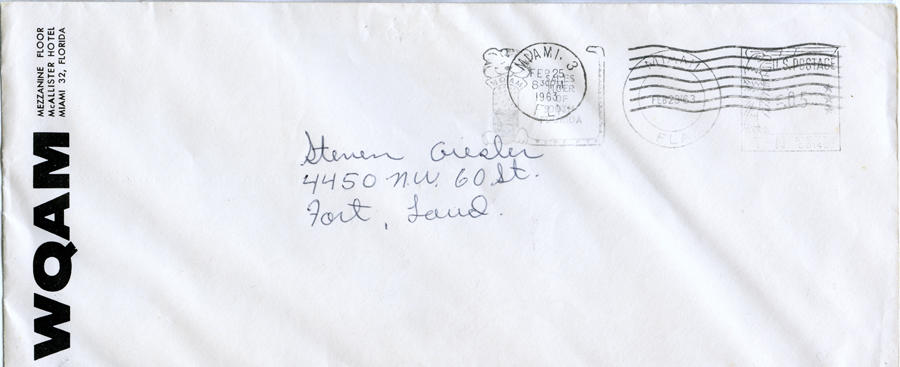 WQAM
MEZZANINE FLOOR
McALLISTER HOTEL
MIAMI 32, FLORIDA
MIAMI. 3
FEB 25
8 30 PM
1963
FLA
MIAMI
FEB 25'63
FLA
U.S. POSTAGE
.05
Steven
4450 N.W. 60 St.
Fort, Laud.